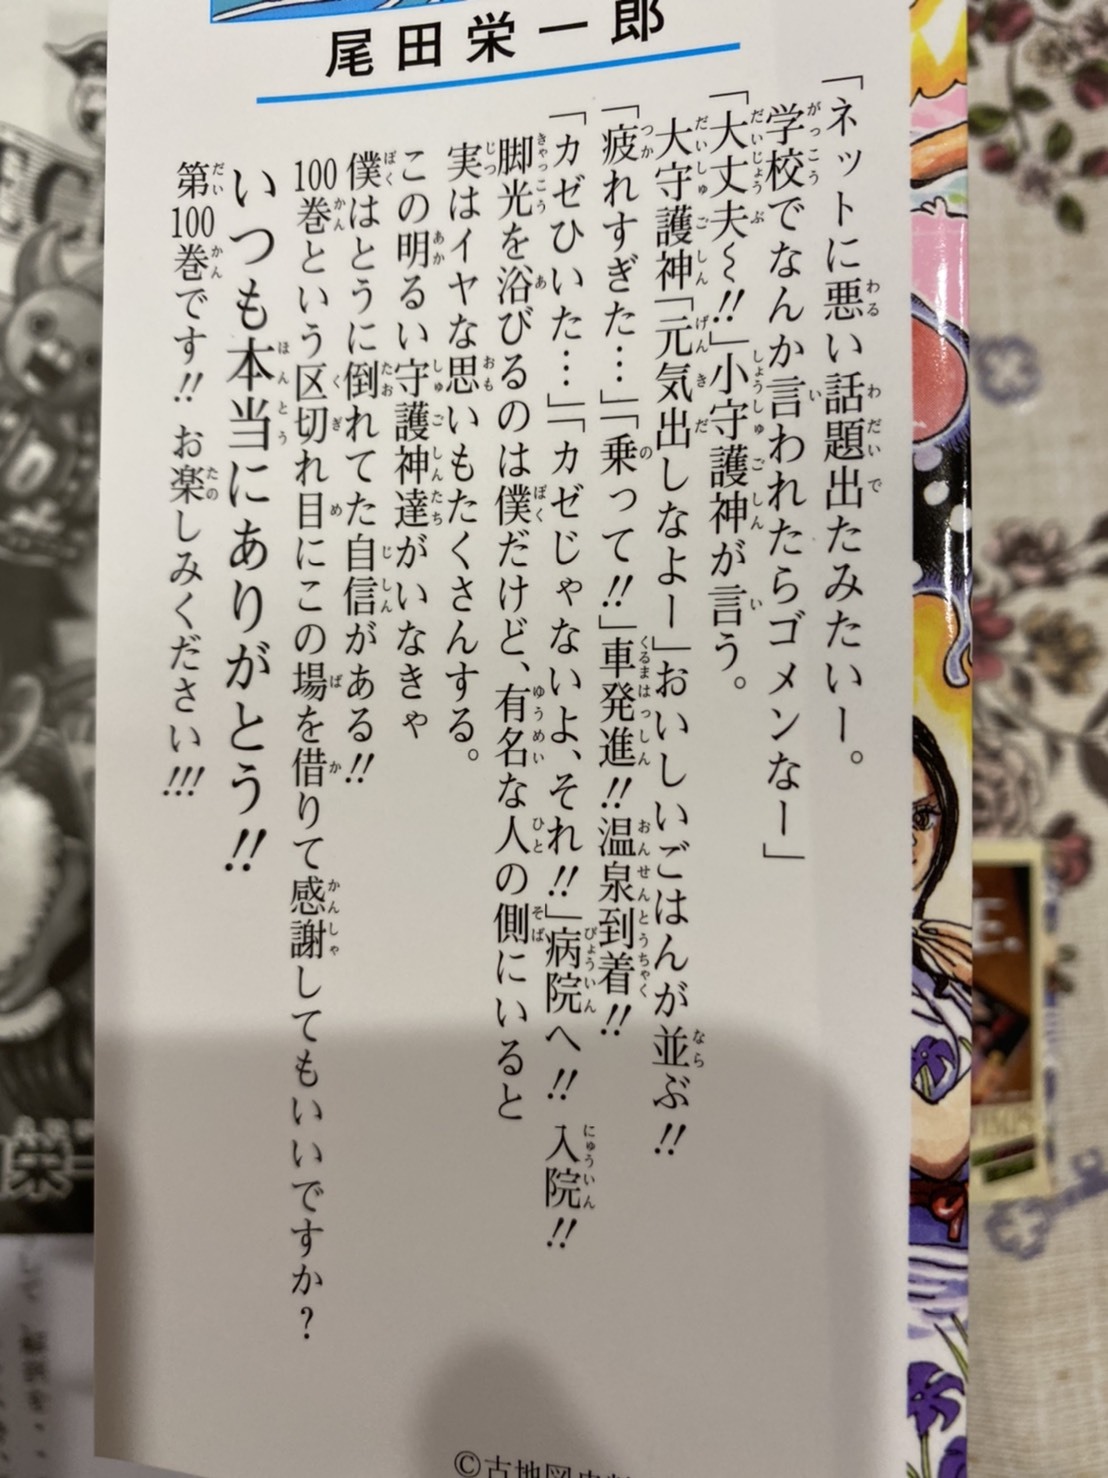 尾田栄一郎
「ネットに悪い話題出たみたいー。
学校でなんか言われたらゴメンなー」
「大丈夫〜!!」小守護神が言う。
大守護神「元気出しなよー」おいしいごはんが並ぶ!!
「疲れすぎた…」「乗って!!」車発進!!温泉到着!!
「カゼひいた…」「カゼじゃないよ、それ!!」病院へ!! 入院!!
脚光を浴びるのは僕だけど、有名な人の側にいると
実はイヤな思いもたくさんする。
この明るい守護神達がいなきゃ
僕はとうに倒れてた自信がある!!
100巻という区切れ目にこの場を借りて感謝してもいいですか?
いつも本当にありがとう!!
第100巻です!! お楽しみください!!!